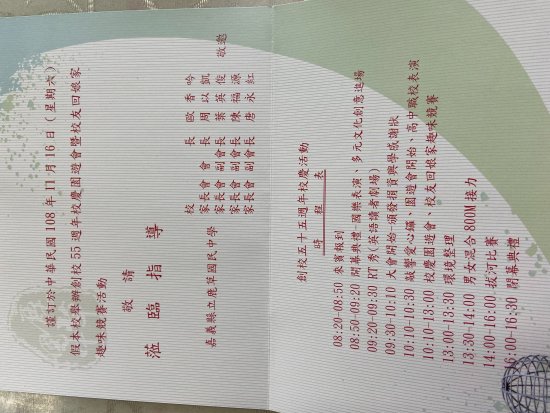 謹訂於中華民國 108 年 11 月 16 日（星期六）
假本校舉辦創校 55 週年校慶園遊會暨校友回娘家
趣味競賽活動
敬請
蒞臨指導
嘉義縣立鹿草國民中學
校長 歐香吟
家長會會長 周以凱
家長會副會長 葉英俊
家長會副會長 陳福源
家長會副會長 唐永紅
敬邀
創校五十五週年校慶活動
時程表
08:20-08:50 來賓報到
08:50-09:20 開幕典禮-國樂表演、多元文化創意進場
09:20-09:30 RT 秀(英語讀者劇場)
09:30-10:10 大會開始-頒發捐資興學感謝狀
10:10-10:30 敲響愛心鐘、園遊會開始、高中職校表演
10:10-13:00 校慶園遊會、校友回娘家趣味競賽
13:00-13:30 環境整理
13:30-14:00 男女混合 800M 接力
14:00-16:00 拔河比賽
16:00-16:30 閉幕典禮